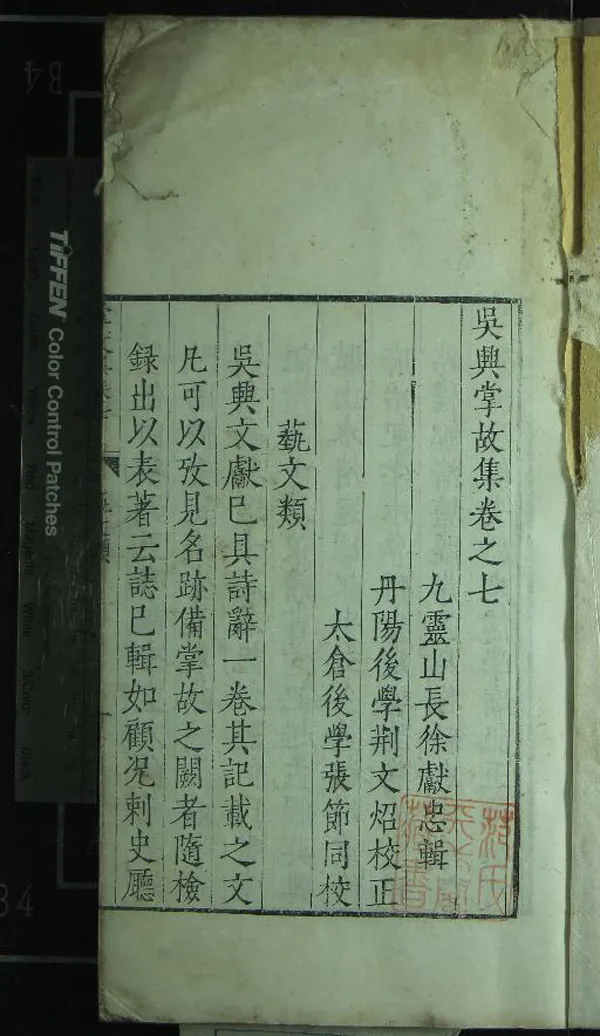 吳興掌故集卷之七
九靈山長徐獻忠輯
丹陽後學荆文炤校正
太倉後學張節同校
藝文類
吳興文獻已具詩辭一卷其記載之文
凡可以攷見名跡備掌故之闕者隨檢
録出以表著云誌已輯如顧况刺史廳
TIFFEN Color Control Patches
B4